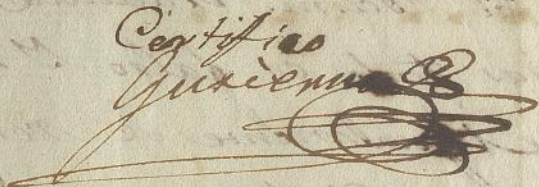 Certifico
Gutierrez